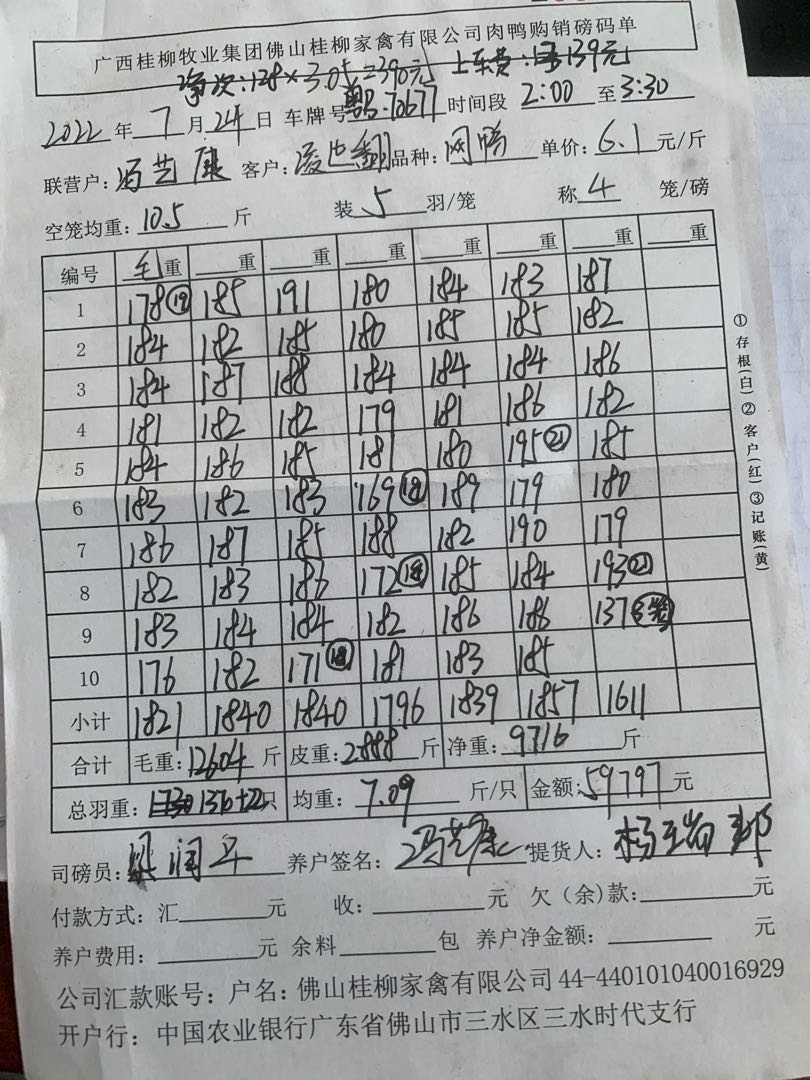 广西桂柳牧业集团佛山桂柳家禽有限公司肉鸭购销磅码单
次:128×3.05=390元 上车费: 139元
2022年7月24日 车牌号 70677 时间段 2:00 至 3:30
联营户:冯艺康 客户: 品种: 网鸭 单价: 6.1 元/斤
空笼均重: 10.5 斤 装 5 羽/笼 称 4 笼/磅
编号 毛重 重 重 重 重 重 重 重
1 178⑲ 185 191 180 184 183 187
2 184 182 185 180 185 185 182
3 184 187 188 184 184 184 186
4 181 182 182 179 181 186 182
5 184 186 185 181 180 195㉑ 185
6 183 182 183 169⑱ 189 179 180
7 186 187 185 188 182 190 179
8 182 183 186 172 185 184 193㉑
9 183 184 184 182 186 186 137
10 176 182 171⑱ 181 183 185
小计 1821 1840 1840 1796 1839 1857 1611
合计 毛重: 12604 斤 皮重: 2888 斤 净重: 9716 斤
总羽重: 只 均重: 7.09 斤/只 金额: 59797 元
司磅员: 梁润 养户签名: 冯艺康 提货人: 杨
付款方式:汇 元 收: 元 欠(余)款: 元
养户费用: 元 余料 包 养户净金额: 元
公司汇款账号:户名:佛山桂柳家禽有限公司 44-440101040016929
开户行:中国农业银行广东省佛山市三水区三水时代支行
①存根(白)②客户(红)③记账(黄)